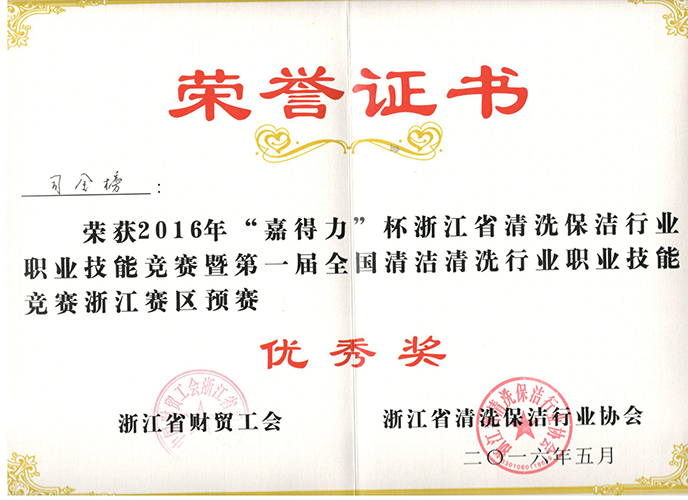 荣誉证书
司金榜：
荣获2016年“嘉得力”杯浙江省清洗保洁行业
职业技能竞赛暨第一届全国清洁清洗行业职业技能
竞赛浙江赛区预赛
优秀奖
浙江省财贸工会 浙江省清洗保洁行业协会
二〇一六年五月
浙江省清洗保洁行业协会